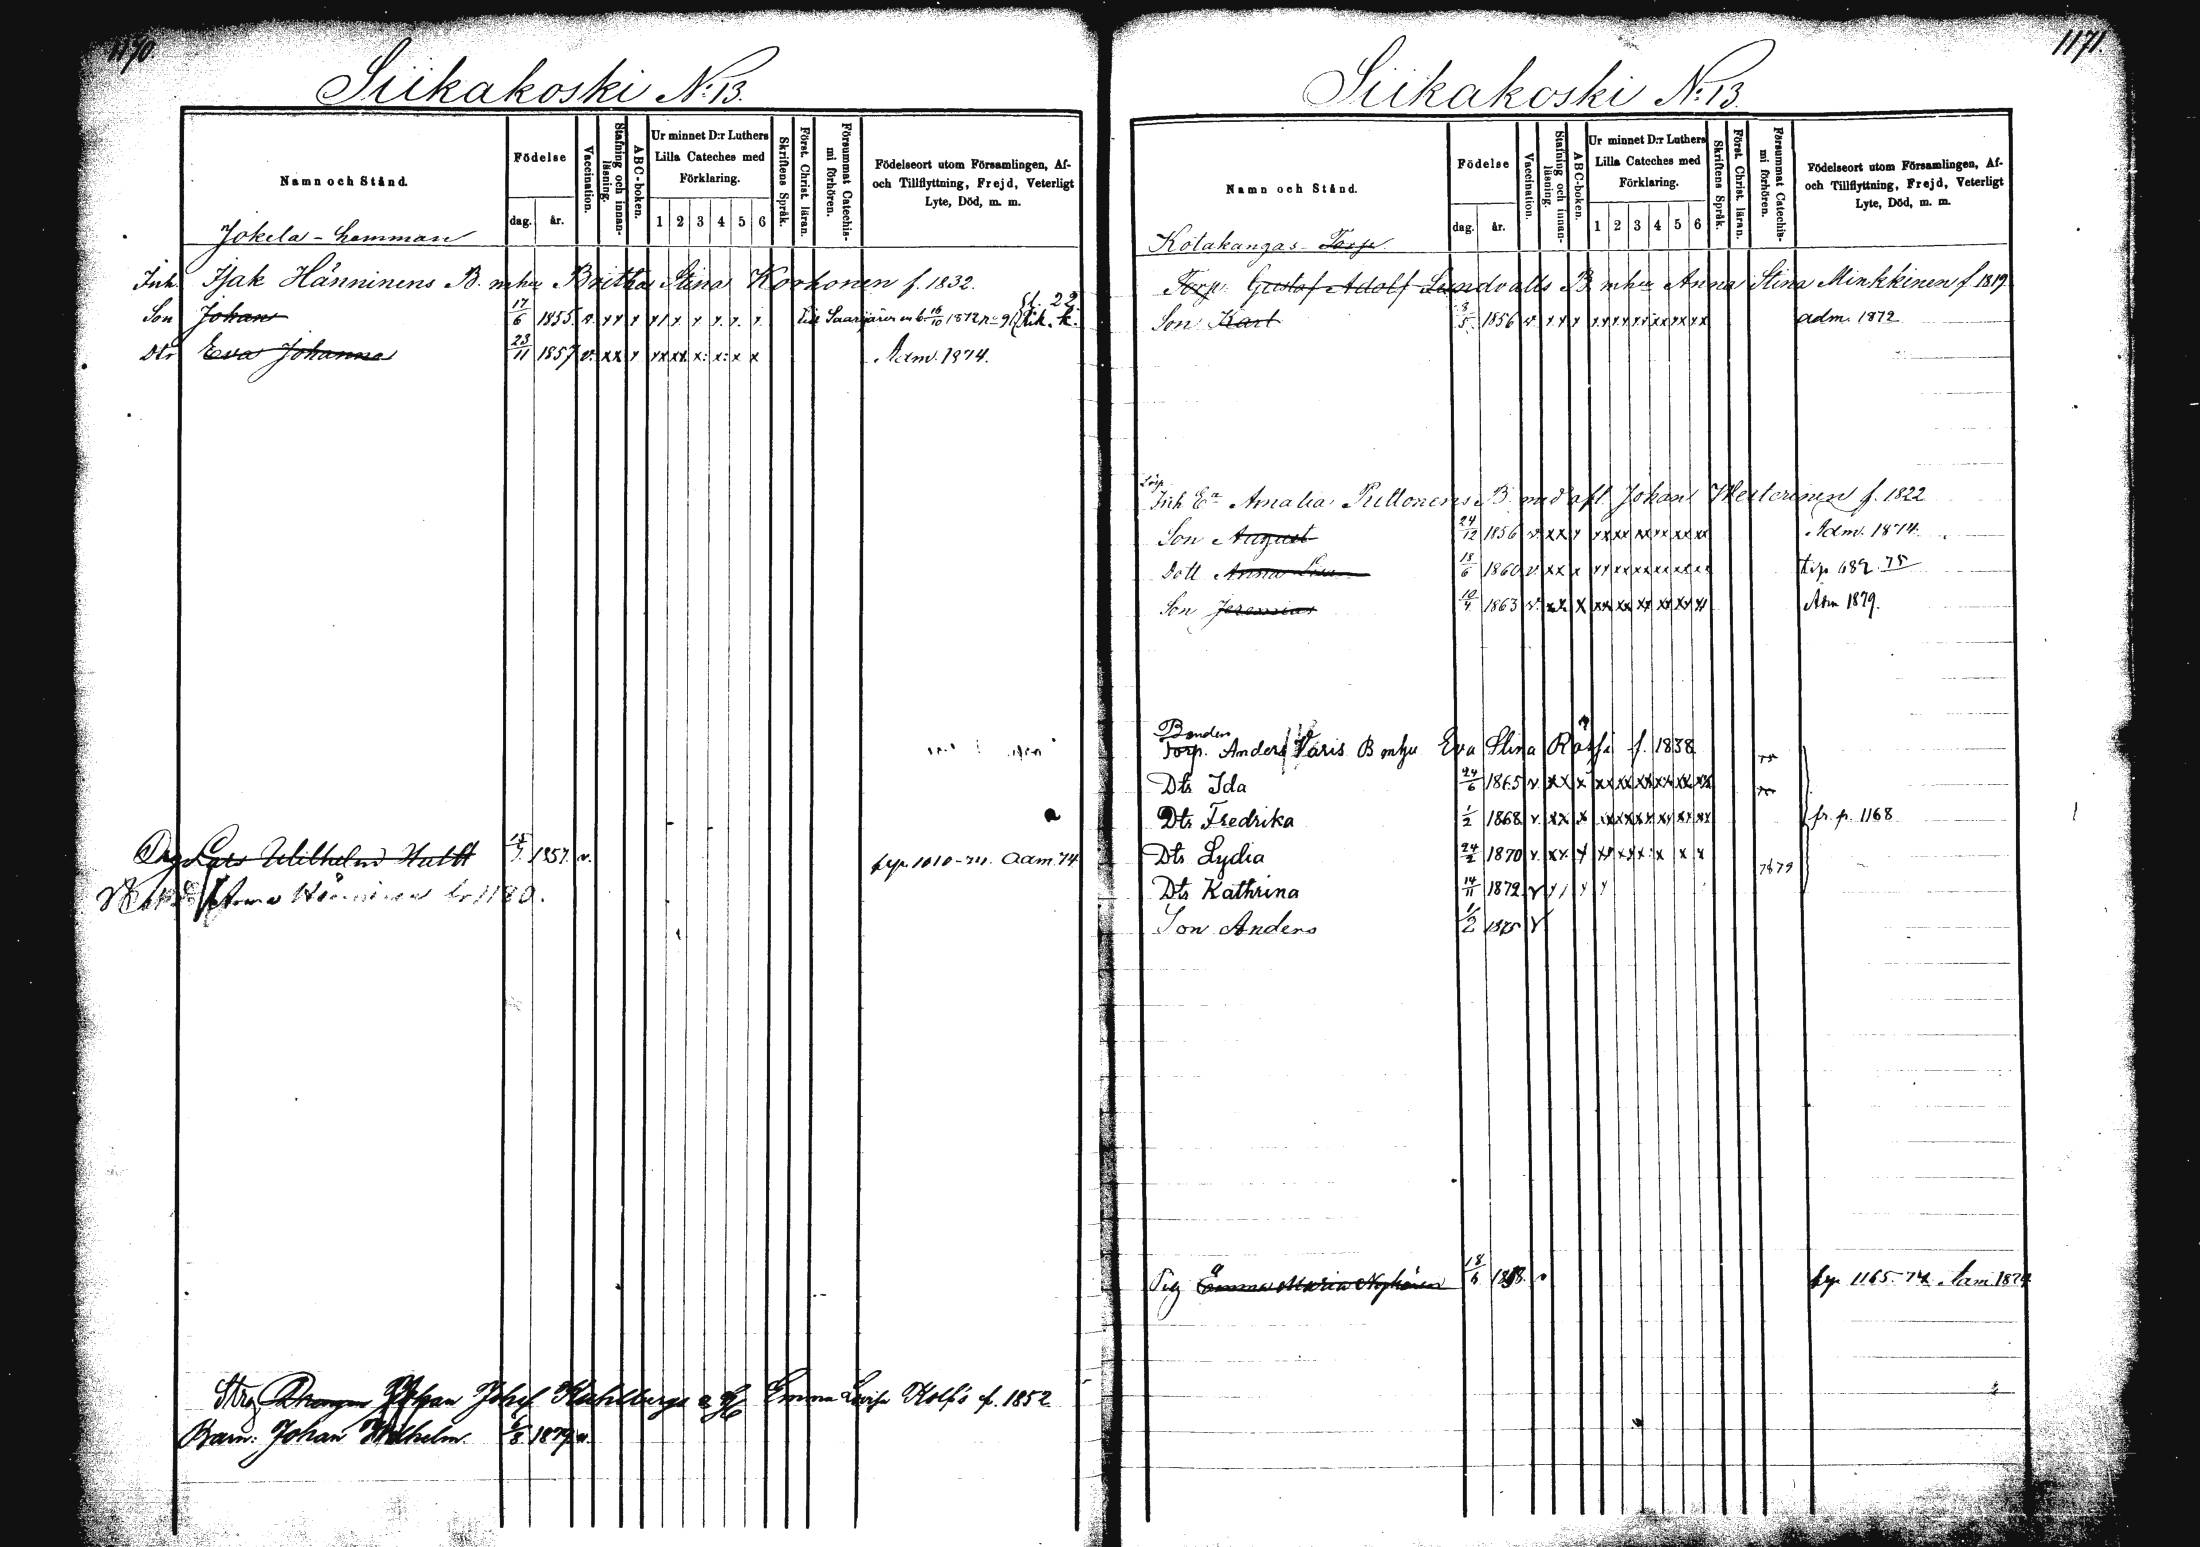 1170.
Siikakoski N:13.
Namn och Stånd.
Födelse
dag.
år.
Vaccination.
Stafning och innan-
läsning.
ABC-boken.
Ur minnet D:r Luthers
Lilla Cateches med
Förklaring.
1 2 3 4 5 6
Skriftens Språk.
Först. Christ. läran.
Försummat Catechis-
mi förhören.
Födelseort utom Församlingen, Af-
och Tillflyttning, Frejd, Veterligt
Lyte, Död, m. m.
Jokela - hemman
Inh. Isak Hänninens B. mhu Britha Stina Korhonen f. 1832.
Son Johan 17/6 1855 v. x x x x / x x x. x. x. Saarijärvi 16/10 1872 n:o 91
Dtr Eva Johanna 23/11 1857 v. x x x xx xx x: x: x x Adm. 1874.
Drg Lars Wilhelm Hallt 1857. v. 1010-74. Adm. 74
Hänninen 1180.
Strg Johan Josef Emma Lovisa f. 1852
Barn: Johan Wilhelm. 6/8 1879 v.
1171.
Siikakoski N:13.
Namn och Stånd.
Födelse
dag.
år.
Vaccination.
Stafning och innan-
läsning.
ABC-boken.
Ur minnet D:r Luthers
Lilla Cateches med
Förklaring.
1 2 3 4 5 6
Skriftens Språk.
Först. Christ. läran.
Försummat Catechis-
mi förhören.
Födelseort utom Församlingen, Af-
och Tillflyttning, Frejd, Veterligt
Lyte, Död, m. m.
Kotakangas Torp
Torp. Gustaf Adolf Lundvalls B mhu Anna Stina Minkkinen f 1819
Son Karl 8/5 1856 v x x x xx xx xx xx xx xx adm. 1872
Inh E:a Amalia Puttonens B. med afl. Johan Westerinen f. 1822
Son August 24/12 1856 v. xx x xx xx xx xx xx xx Adm. 1874.
Dott Anna Lisa 18/6 1860 v. xx x xx xx xx xx xx xx 682. 75
Son Jeremias 10/4 1863 v. xx x xx xx xx xx xx xx Adm 1879.
Bonden
Torp. Anders Varis B mhu Eva Stina f. 1838
Dtr Ida 24/6 1865 v xx x xx xx xx xx xx xx
Dtr Fredrika 1/2 1868 v. xx x xx xx xx xx xx xx fr. p. 1168
Dtr Lydia 24/2 1870 v. xx x xx xx x x x 7879
Dtr Kathrina 14/11 1872 v x / x x
Son Anders 1/2 1875 v
Pig Emma Maria 18/6 1858. v 1165. 74. Adm. 1874